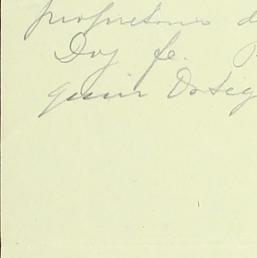 propietarios d
Doy fe.
quin Ortig